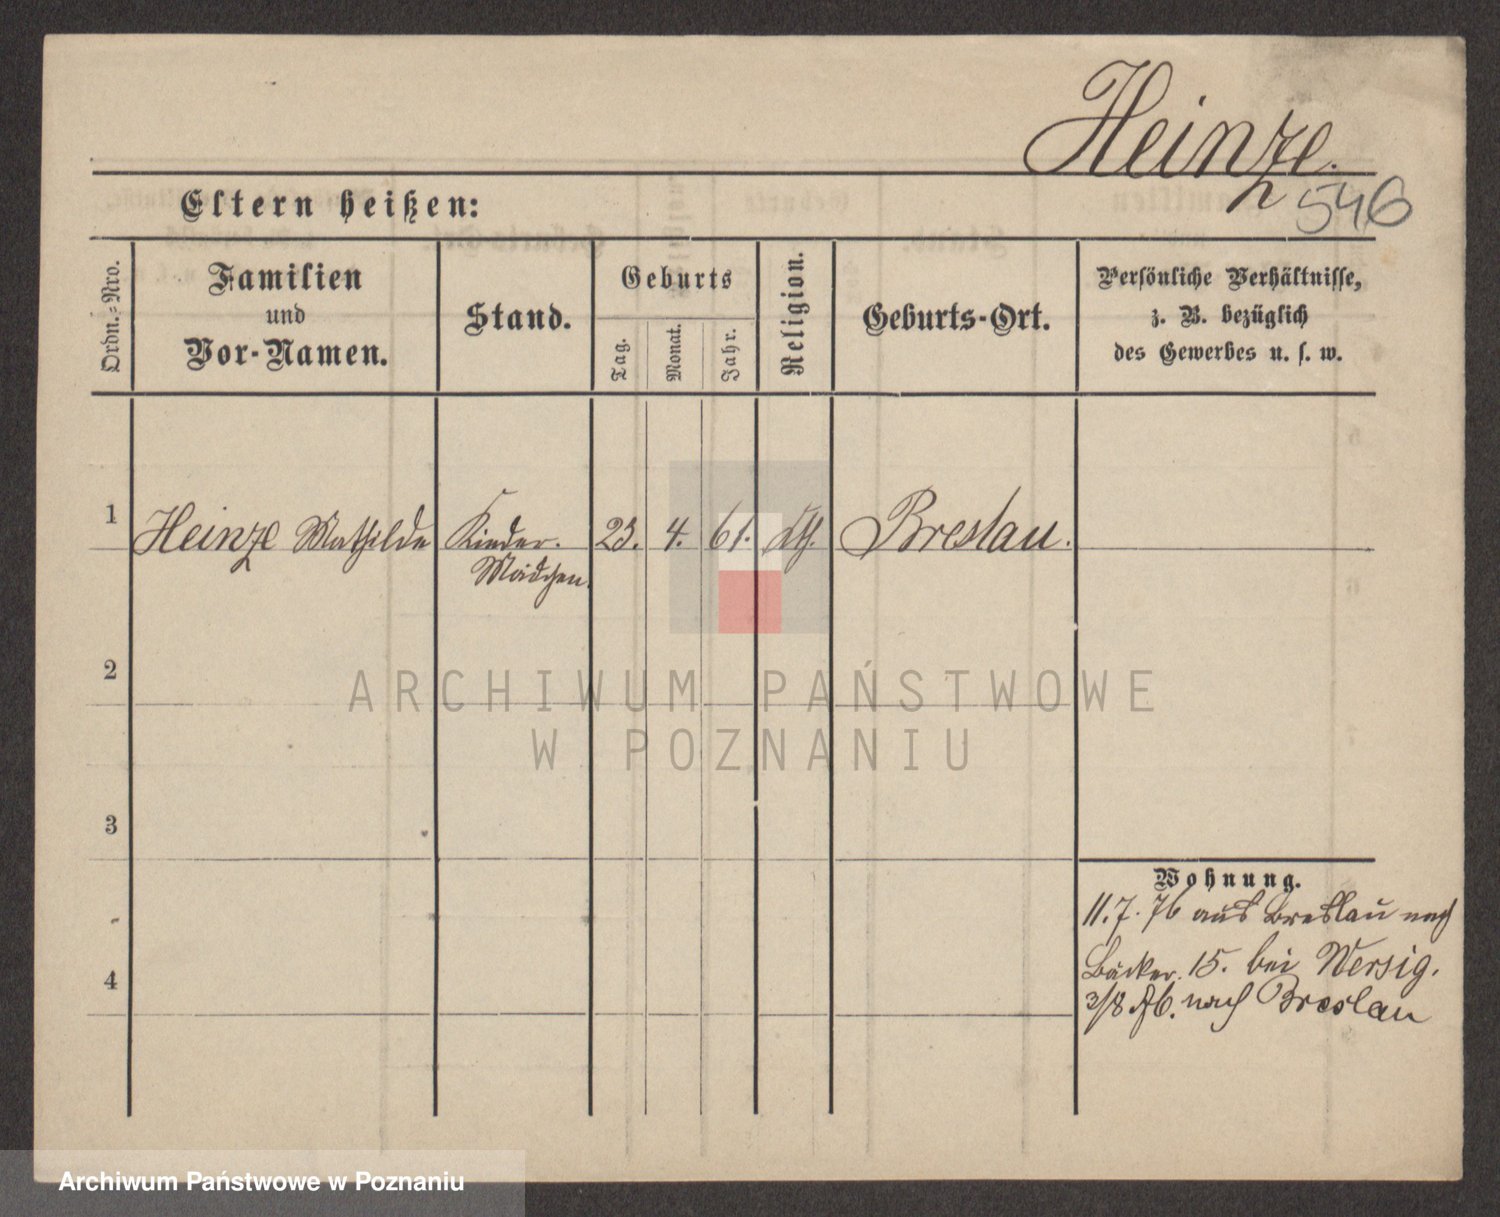 Heinze.
546
Eltern heißen:
Ordn.=Nro.
Familien
und
Vor-Namen.
Stand.
Geburts
Tag.
Monat.
Jahr.
Religion.
Geburts-Ort.
Persönliche Verhältnisse,
z. B. bezüglich
des Gewerbes u. s. w.
1
Heinze Mathilde
Kinder-
Mädchen.
23.
4.
61.
Breslau.
2
ARCHIWUM PAŃSTWOWE
W POZNANIU
3
Wohnung.
11.7.76 aus Breslau nach
Bäcker. 15. bei Wersig.
3/8 76. nach Breslau
4
Archiwum Państwowe w Poznaniu